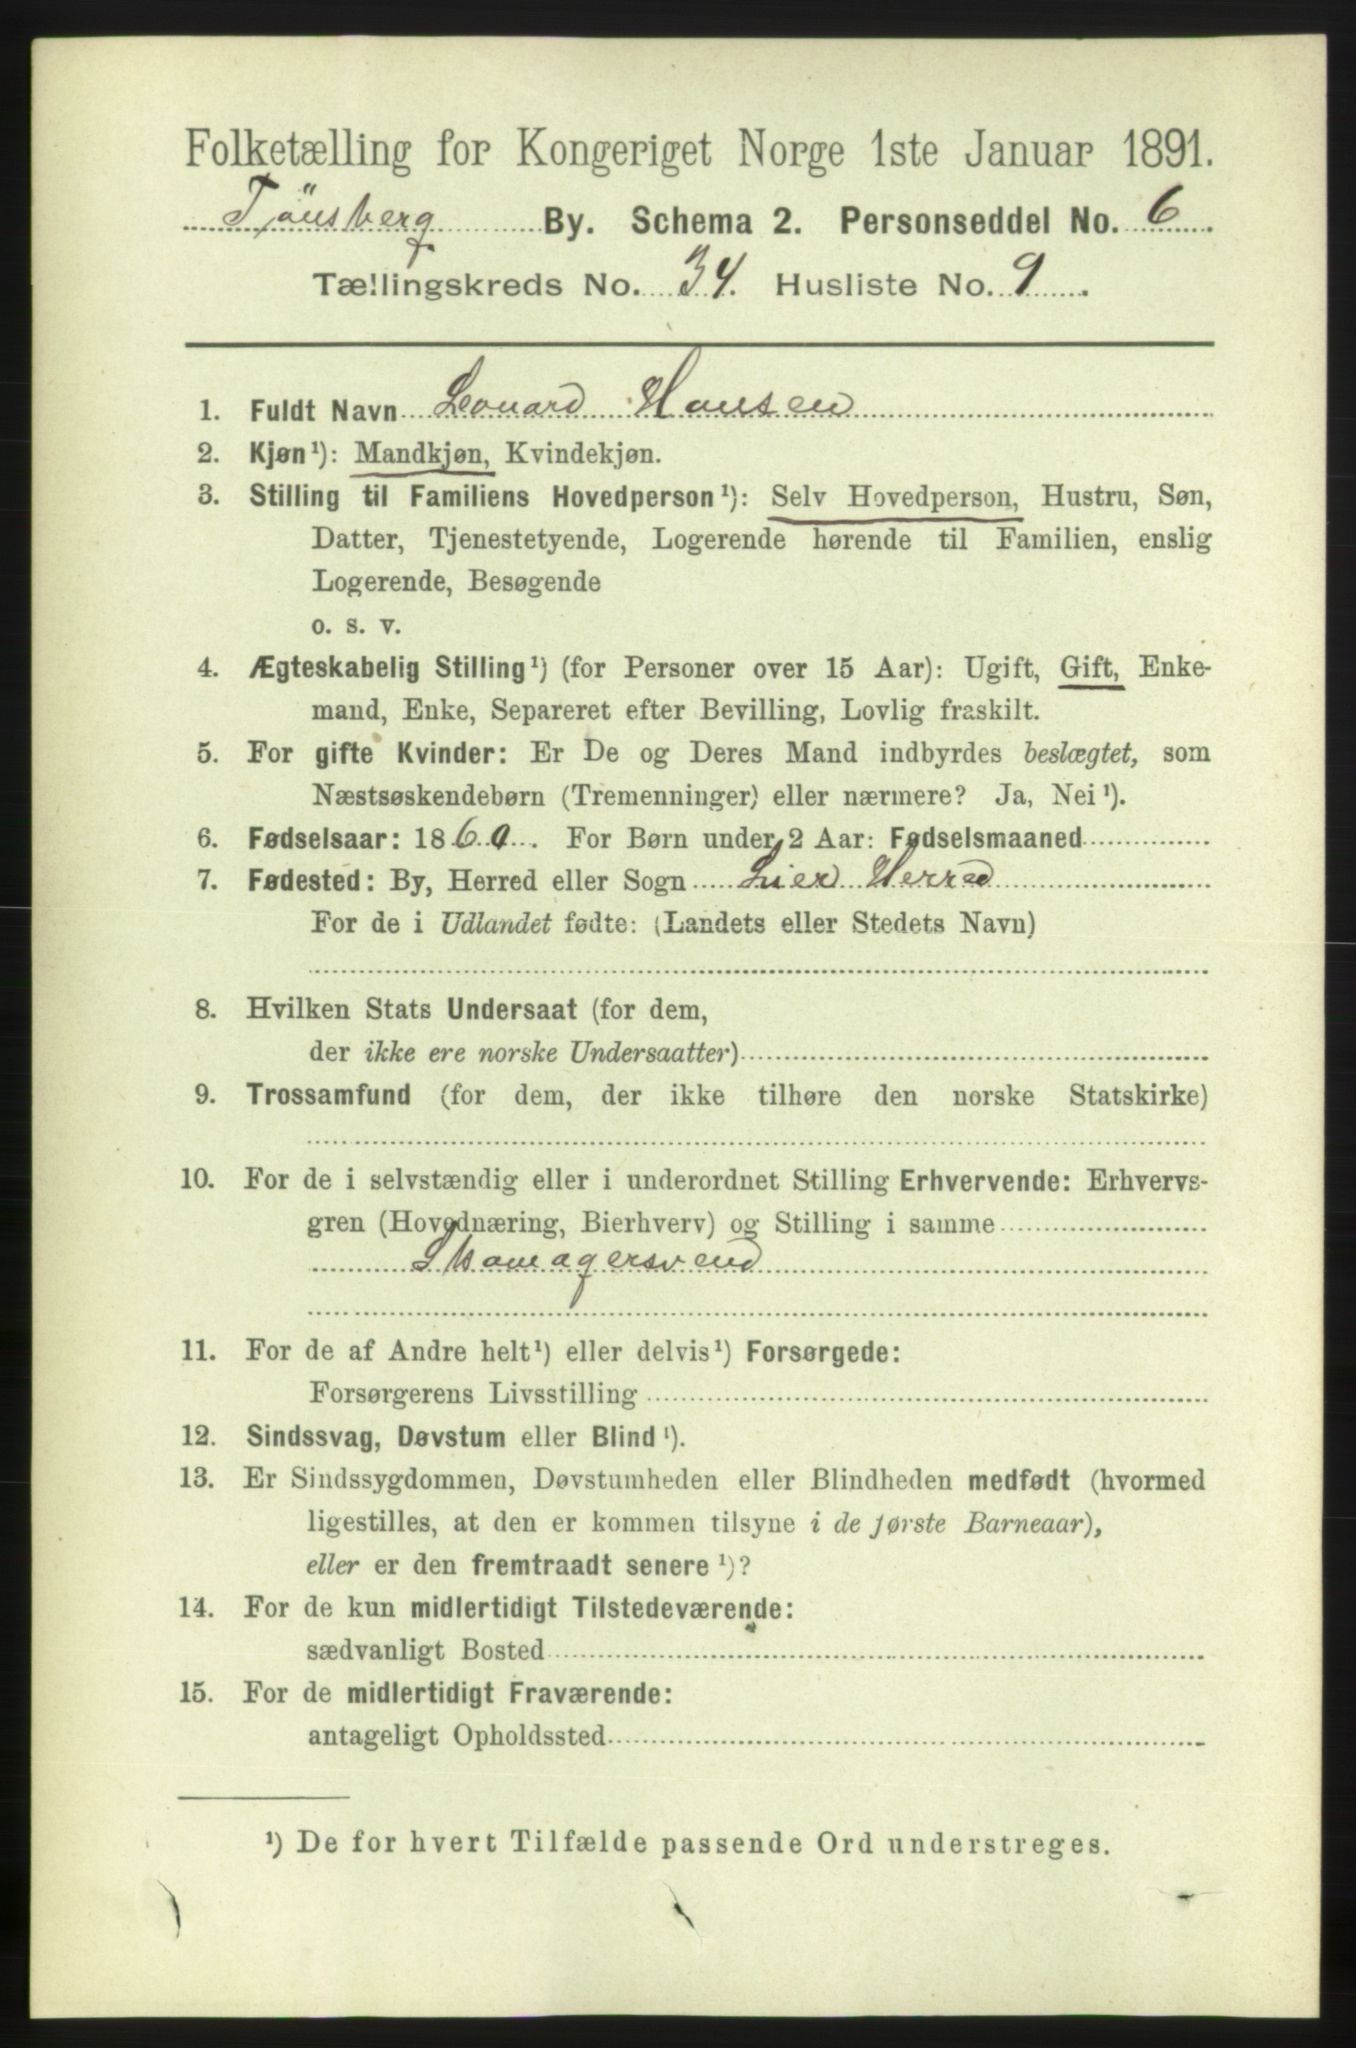 Folketælling for Kongeriget Norge 1ste Januar 1891.
Tönsberg By. Schema 2. Personseddel No. 6.
Tællingskreds No. 34. Husliste No. 9.
1. Fuldt Navn Leonard Hansen
2. Kjøn¹): Mandkjøn, Kvindekjøn.
3. Stilling til Familiens Hovedperson¹): Selv Hovedperson, Hustru, Søn,
Datter, Tjenestetyende, Logerende hørende til Familien, enslig
Logerende, Besøgende
o. s. v.
4. Ægteskabelig Stilling¹) (for Personer over 15 Aar): Ugift, Gift, Enke-
mand, Enke, Separeret efter Bevilling, Lovlig fraskilt.
5. For gifte Kvinder: Er De og Deres Mand indbyrdes beslægtet, som
Næstsøskendebørn (Tremenninger) eller nærmere? Ja, Nei¹).
6. Fødselsaar: 1860. For Børn under 2 Aar: Fødselsmaaned
7. Fødested: By, Herred eller Sogn Lier Herred
For de i Udlandet fødte: (Landets eller Stedets Navn)
8. Hvilken Stats Undersaat (for dem,
der ikke ere norske Undersaatter)
9. Trossamfund (for dem, der ikke tilhøre den norske Statskirke)
10. For de i selvstændig eller i underordnet Stilling Erhvervende: Erhvervs-
gren (Hovednæring, Bierhverv) og Stilling i samme
Skomagersvend
11. For de af Andre helt¹) eller delvis¹) Forsørgede:
Forsørgerens Livsstilling
12. Sindssvag, Døvstum eller Blind¹).
13. Er Sindssygdommen, Døvstumheden eller Blindheden medfødt (hvormed
ligestilles, at den er kommen tilsyne i de første Barneaar),
eller er den fremtraadt senere¹)?
14. For de kun midlertidigt Tilstedeværende:
sædvanligt Bosted
15. For de midlertidigt Fraværende:
antageligt Opholdssted
¹) De for hvert Tilfælde passende Ord understreges.